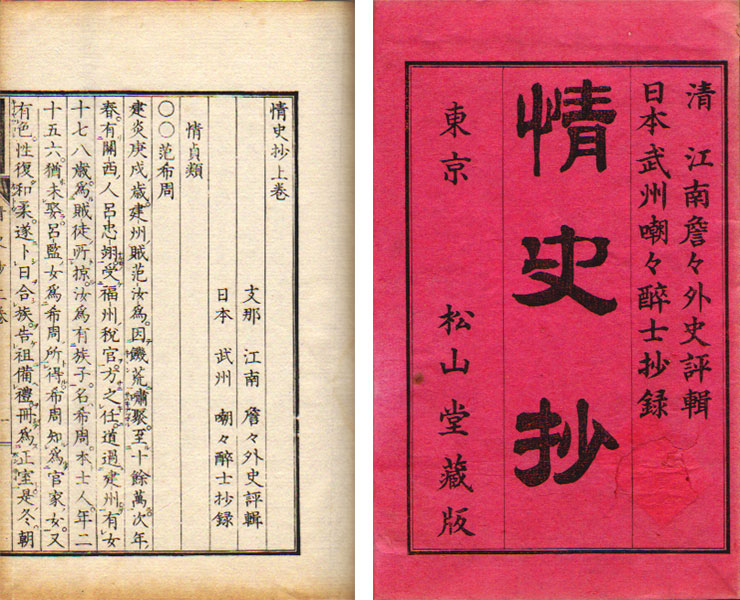 清 江南詹々外史評輯
日本武州嘲々醉士抄録
情史抄
東京 松山堂藏版
情史抄上卷
支那 江南 詹々外史評輯
日本 武州 嘲々醉士抄録
情貞類
〇〇范希周
建炎庚戌歳建州賊范汝爲因饑荒嘯聚至十餘萬次年
春有關西人呂忠翊受福州税官方之任道過建州有女
十七八歳爲賊徒所掠汝爲有族子名希周本士人年二
十五六猶未娶呂監女爲希周所得希周知爲官家女又
有色性復和柔遂卜日合族告祖備禮冊爲正室是冬朝